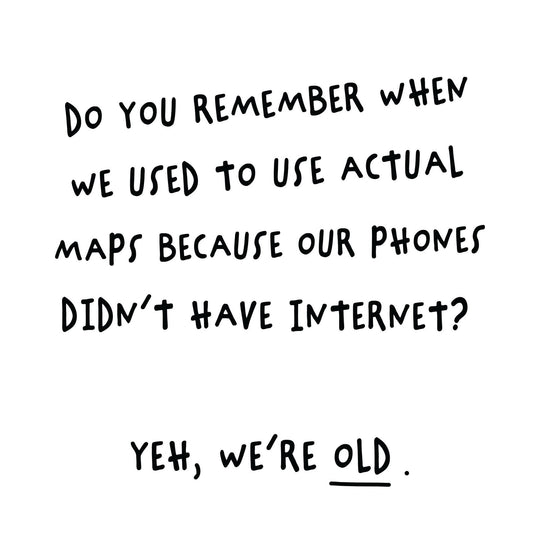 DO YOU REMEMBER WHEN
WE USED TO USE ACTUAL
MAPS BECAUSE OUR PHONES
DIDN'T HAVE INTERNET?
YEH, WE'RE OLD .